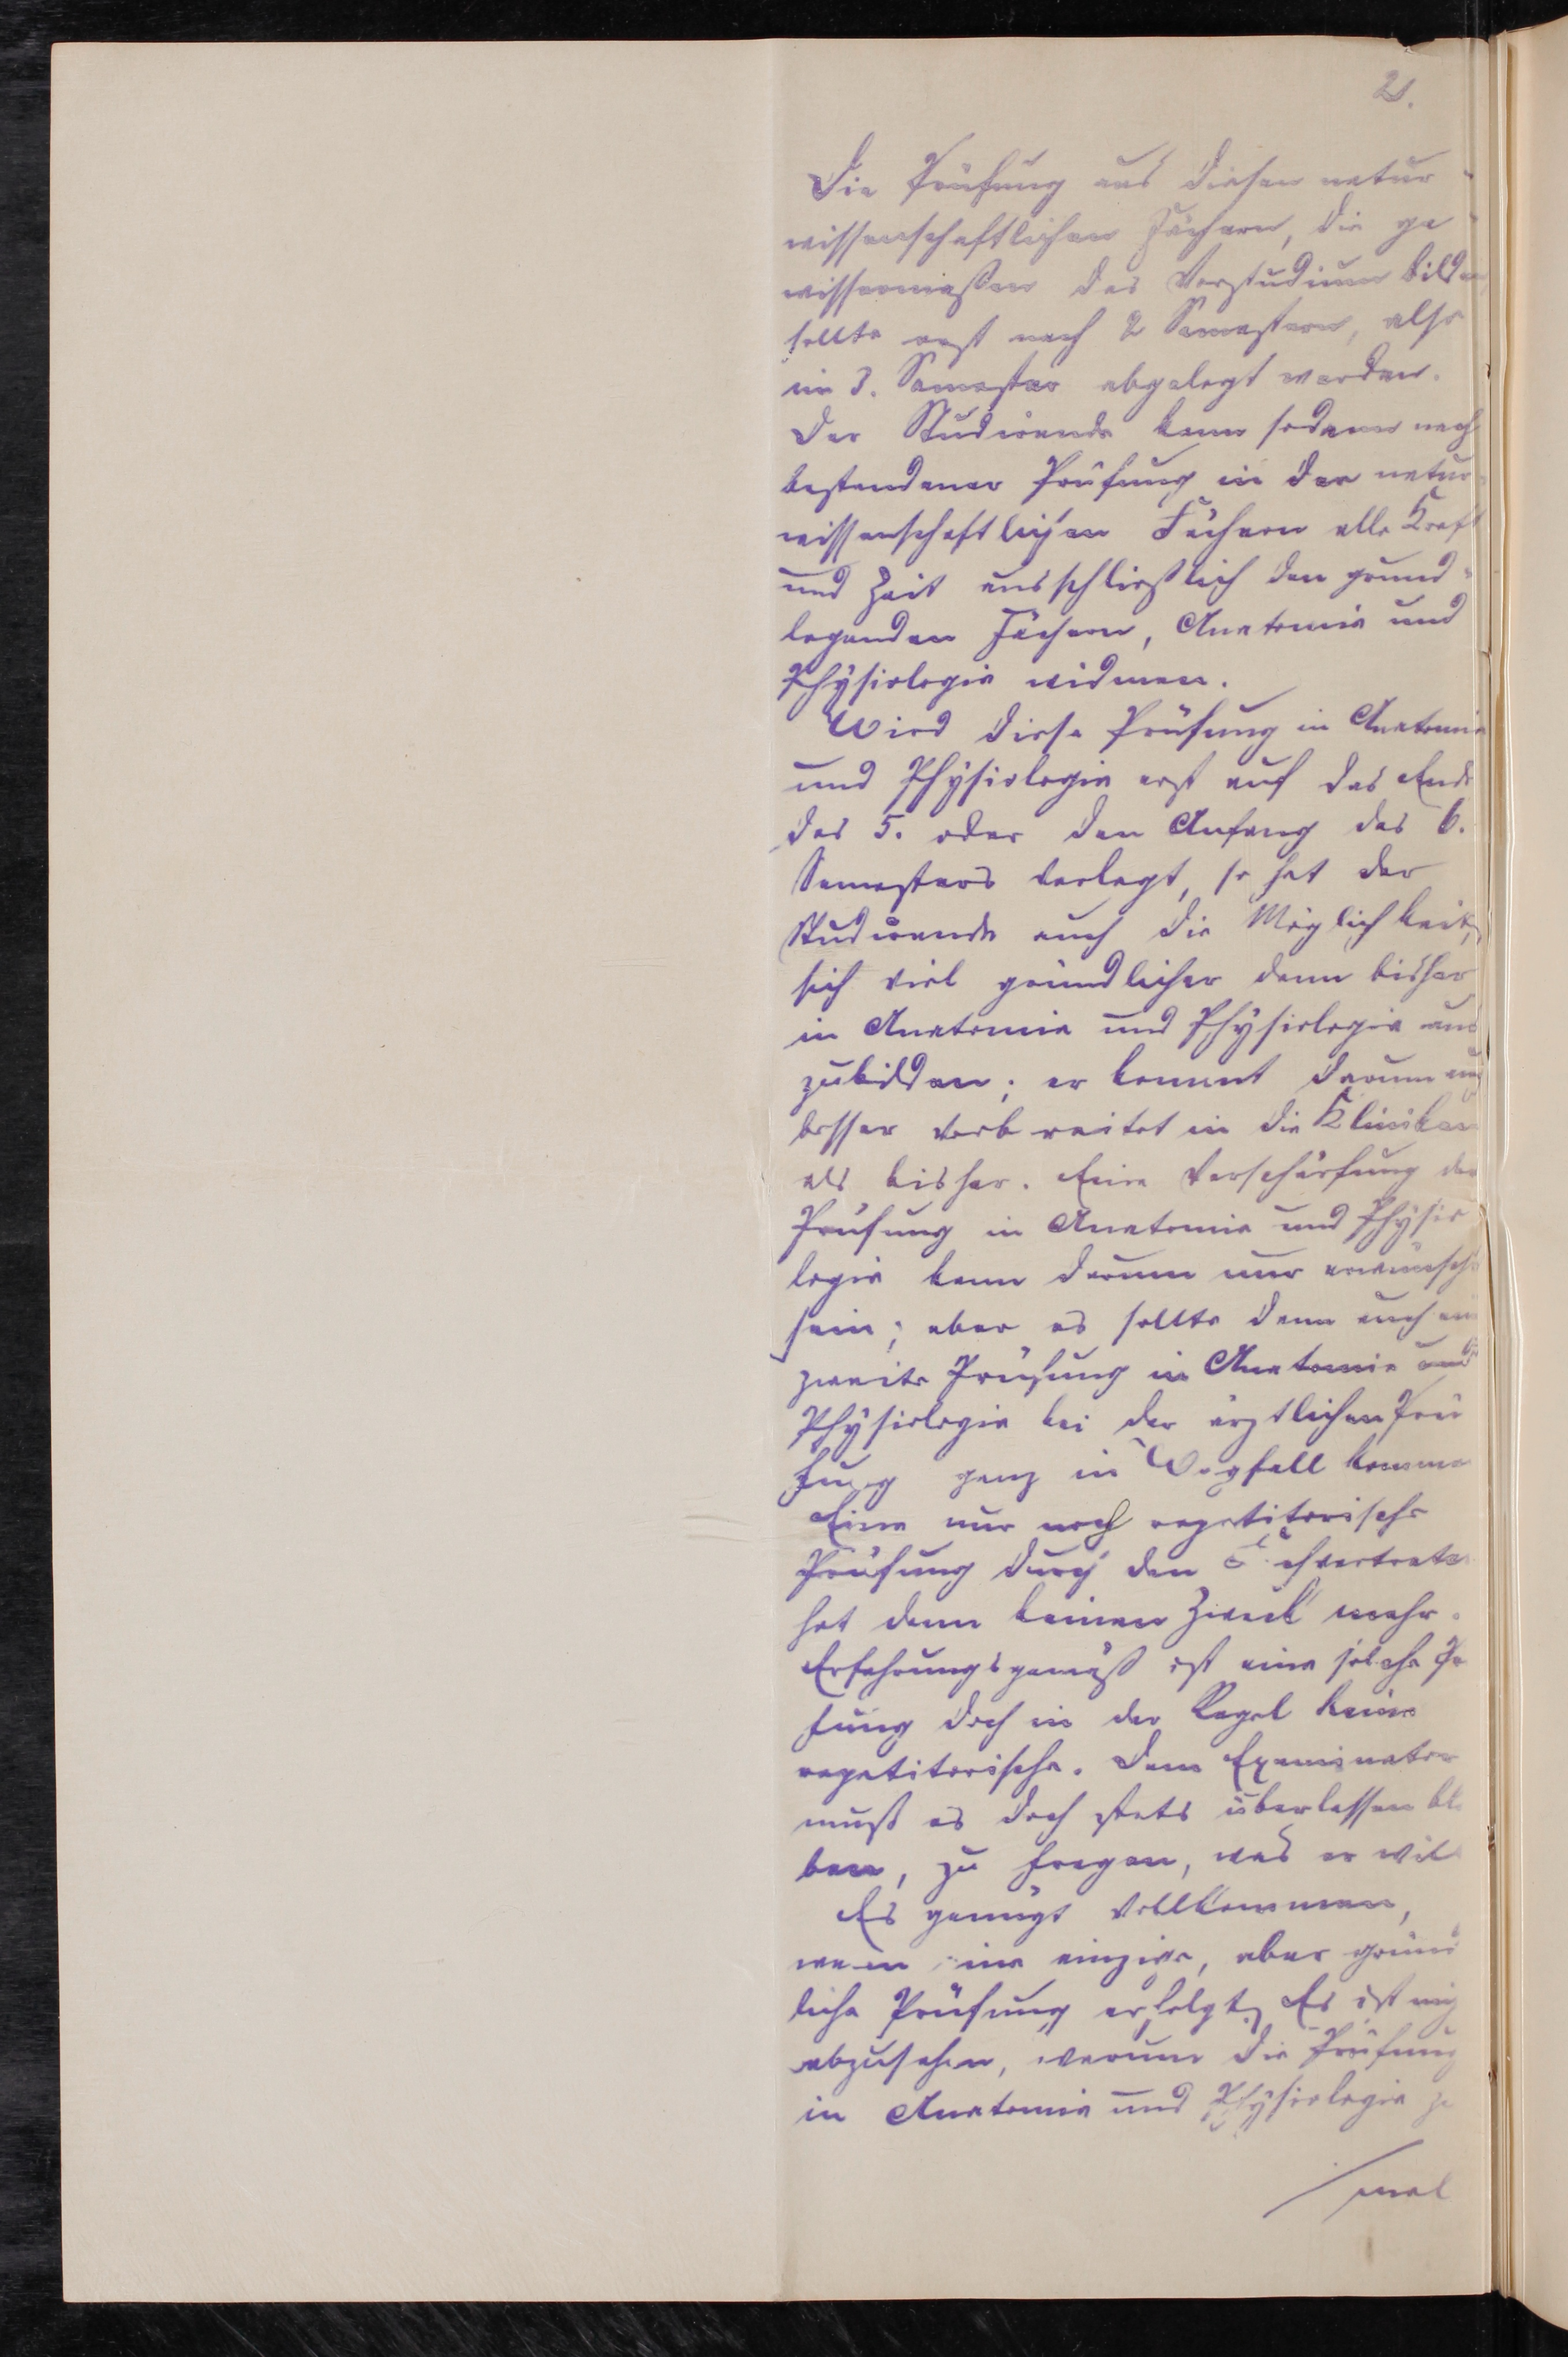 2.
Die Prüfung aus diesen natur-
wissenschaftlichen Fächern, die ge-
wissermaßen das Vorstudium bilden,
sollte erst nach 2 Semestern, also
im 3. Semester abgelegt werden.
Der Studierende kann sodann nach
bestandener Prüfung in den natur-
wissenschaftlichen Fächern alle Kraft
und Zeit ausschließlich den grund-
legenden Fächern, Anatomie und
Physiologie widmen.
Wird diese Prüfung in Anatomie
und Physiologie erst auf das Ende
des 5. oder den Anfang des 6.
Semesters verlegt, so hat der
Studierende auch die Möglichkeit,
sich viel gründlicher denn bisher
in Anatomie und Physiologie aus
zubilden; er kommt darum auch
besser vorbereitet in die Kliniken
als bisher. Eine Verschärfung der
Prüfung in Anatomie und Physio
logie kann darum nur erwünscht
sein; aber es sollte dann auch eine
zweite Prüfung in Anatomie und
Physiologie bei der ärztlichen Prü
fung ganz in Wegfall kommen
Eine nur noch repetitorische
Prüfung durch den Fachvertreter
hat dann keinen Zweck mehr.
Erfahrungsgemäß ist eine solche Prü
fung doch in der Regel keine
repetitorische. Dem Examinator
muß es doch stets überlassen blei
ben, zu fragen, was er will
Es genügt vollkommen,
wenn eine einzige, aber gründ
liche Prüfung erfolgt. Es ist nicht
abzusehen, warum die Prüfung
in Anatomie und Physiologie zwei
mal